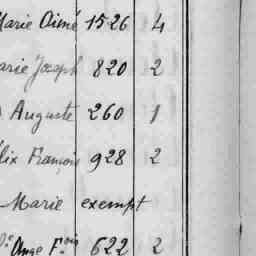 Marie Aimé 1526 4
Marie Joseph 820 2
Auguste 260 1
Félix François 928 2
Marie exempt
Ange F.ois 622 2